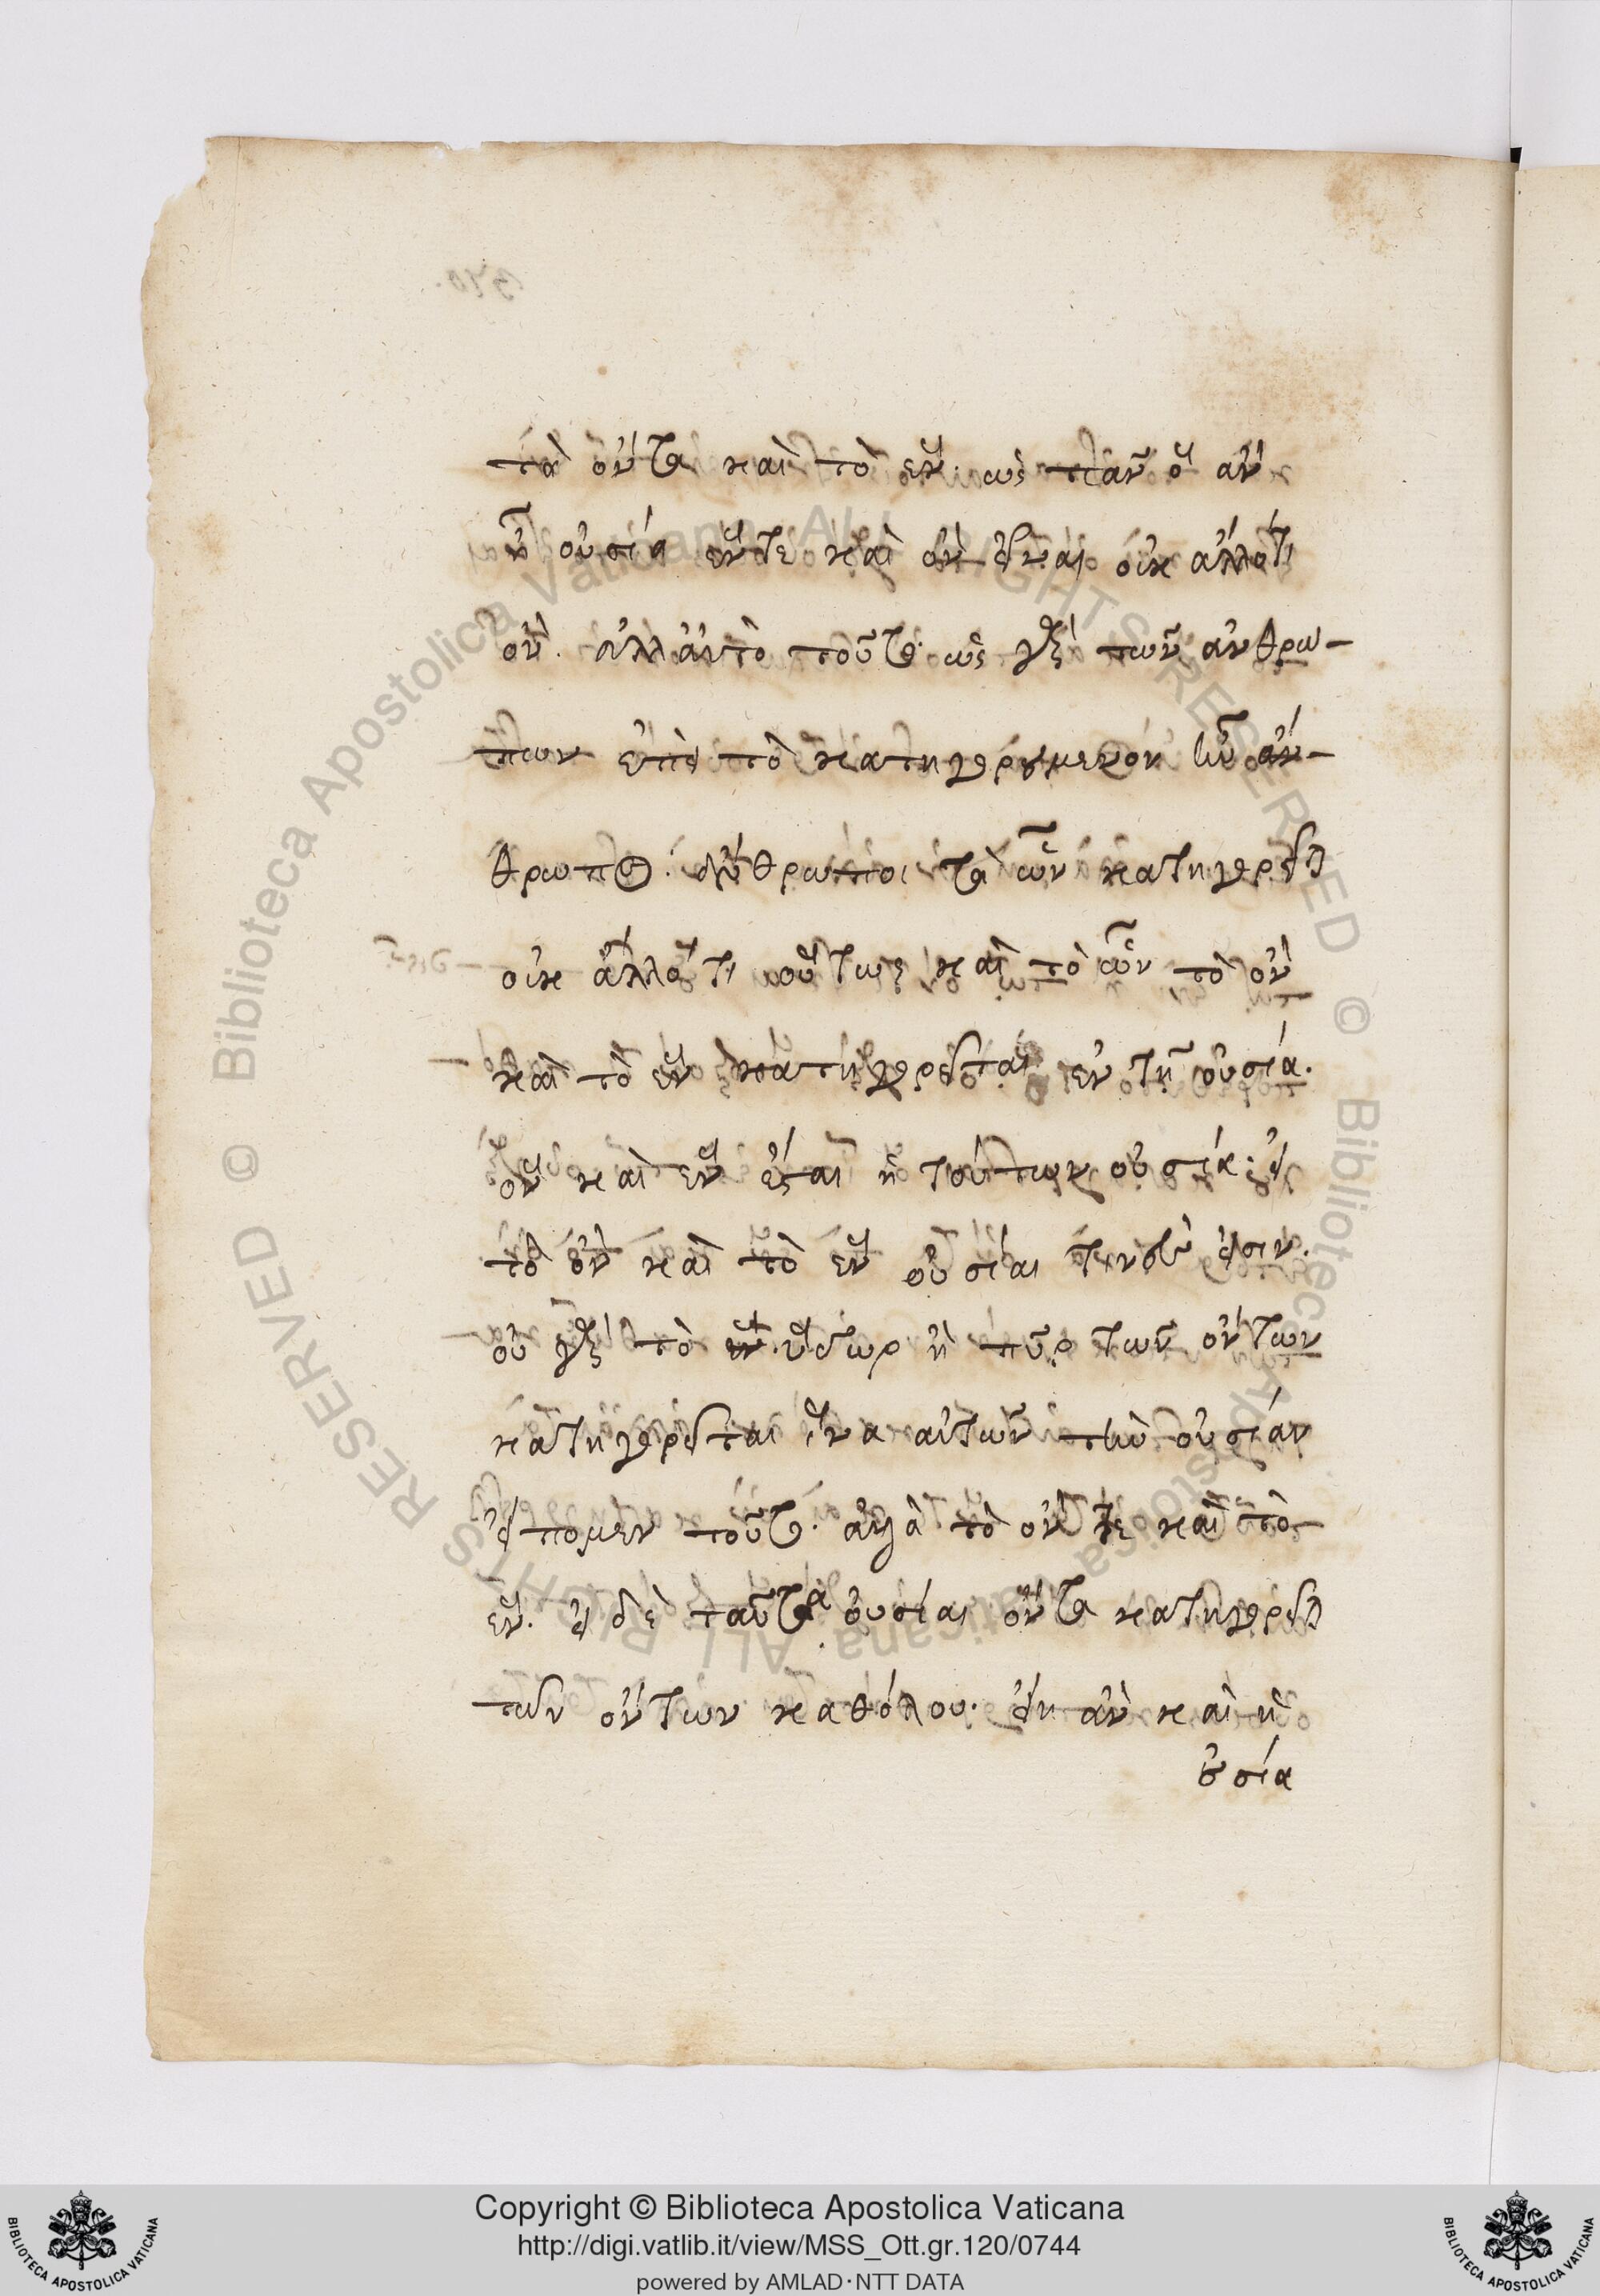 τὰ ὄντα καὶ τὸ ἕν. ὡς πᾶν ὃ ἂν
ᾖ οὐσία ἕν τε καὶ ὂν εἶναι οὐκ ἄλλό τι
ὄν. ἀλλ' αὐτὸ τοῦτο. ὡς γὰρ τῶν ἀνθρώ-
πων ἐπεὶ τὸ κατηγορούμενον ἦν ἄν-
θρωπος. ἄνθρωποι τὰ ὧν κατηγορεῖται
οὐκ ἄλλό τι οὕτως καὶ τὸ ὧν τὸ ὂν
καὶ τὸ ἓν κατηγορεῖται ἐν τῇ οὐσίᾳ.
ὂν καὶ ἓν ἔσται ἡ τούτων οὐσία. εἰ
τὸ ὂν καὶ τὸ ἓν οὐσίαι τινῶν εἰσιν.
οὐ γὰρ τὸ ὕδωρ ἢ πῦρ τῶν ὄντων
κατηγορεῖται ἵνα αὐτῶν τὴν οὐσίαν
εἴπομεν τοῦτο. ἀλλὰ τὸ ὄν τε καὶ τὸ
ἕν. εἰ δὲ ταῦτα οὐσίαι ὄντα κατηγορεῖται
τῶν ὄντων καθόλου. εἴη ἂν καὶ ἡ
οὐσία
Copyright © Biblioteca Apostolica Vaticana
http://digi.vatlib.it/view/MSS_Ott.gr.120/0744
powered by AMLAD·NTT DATA